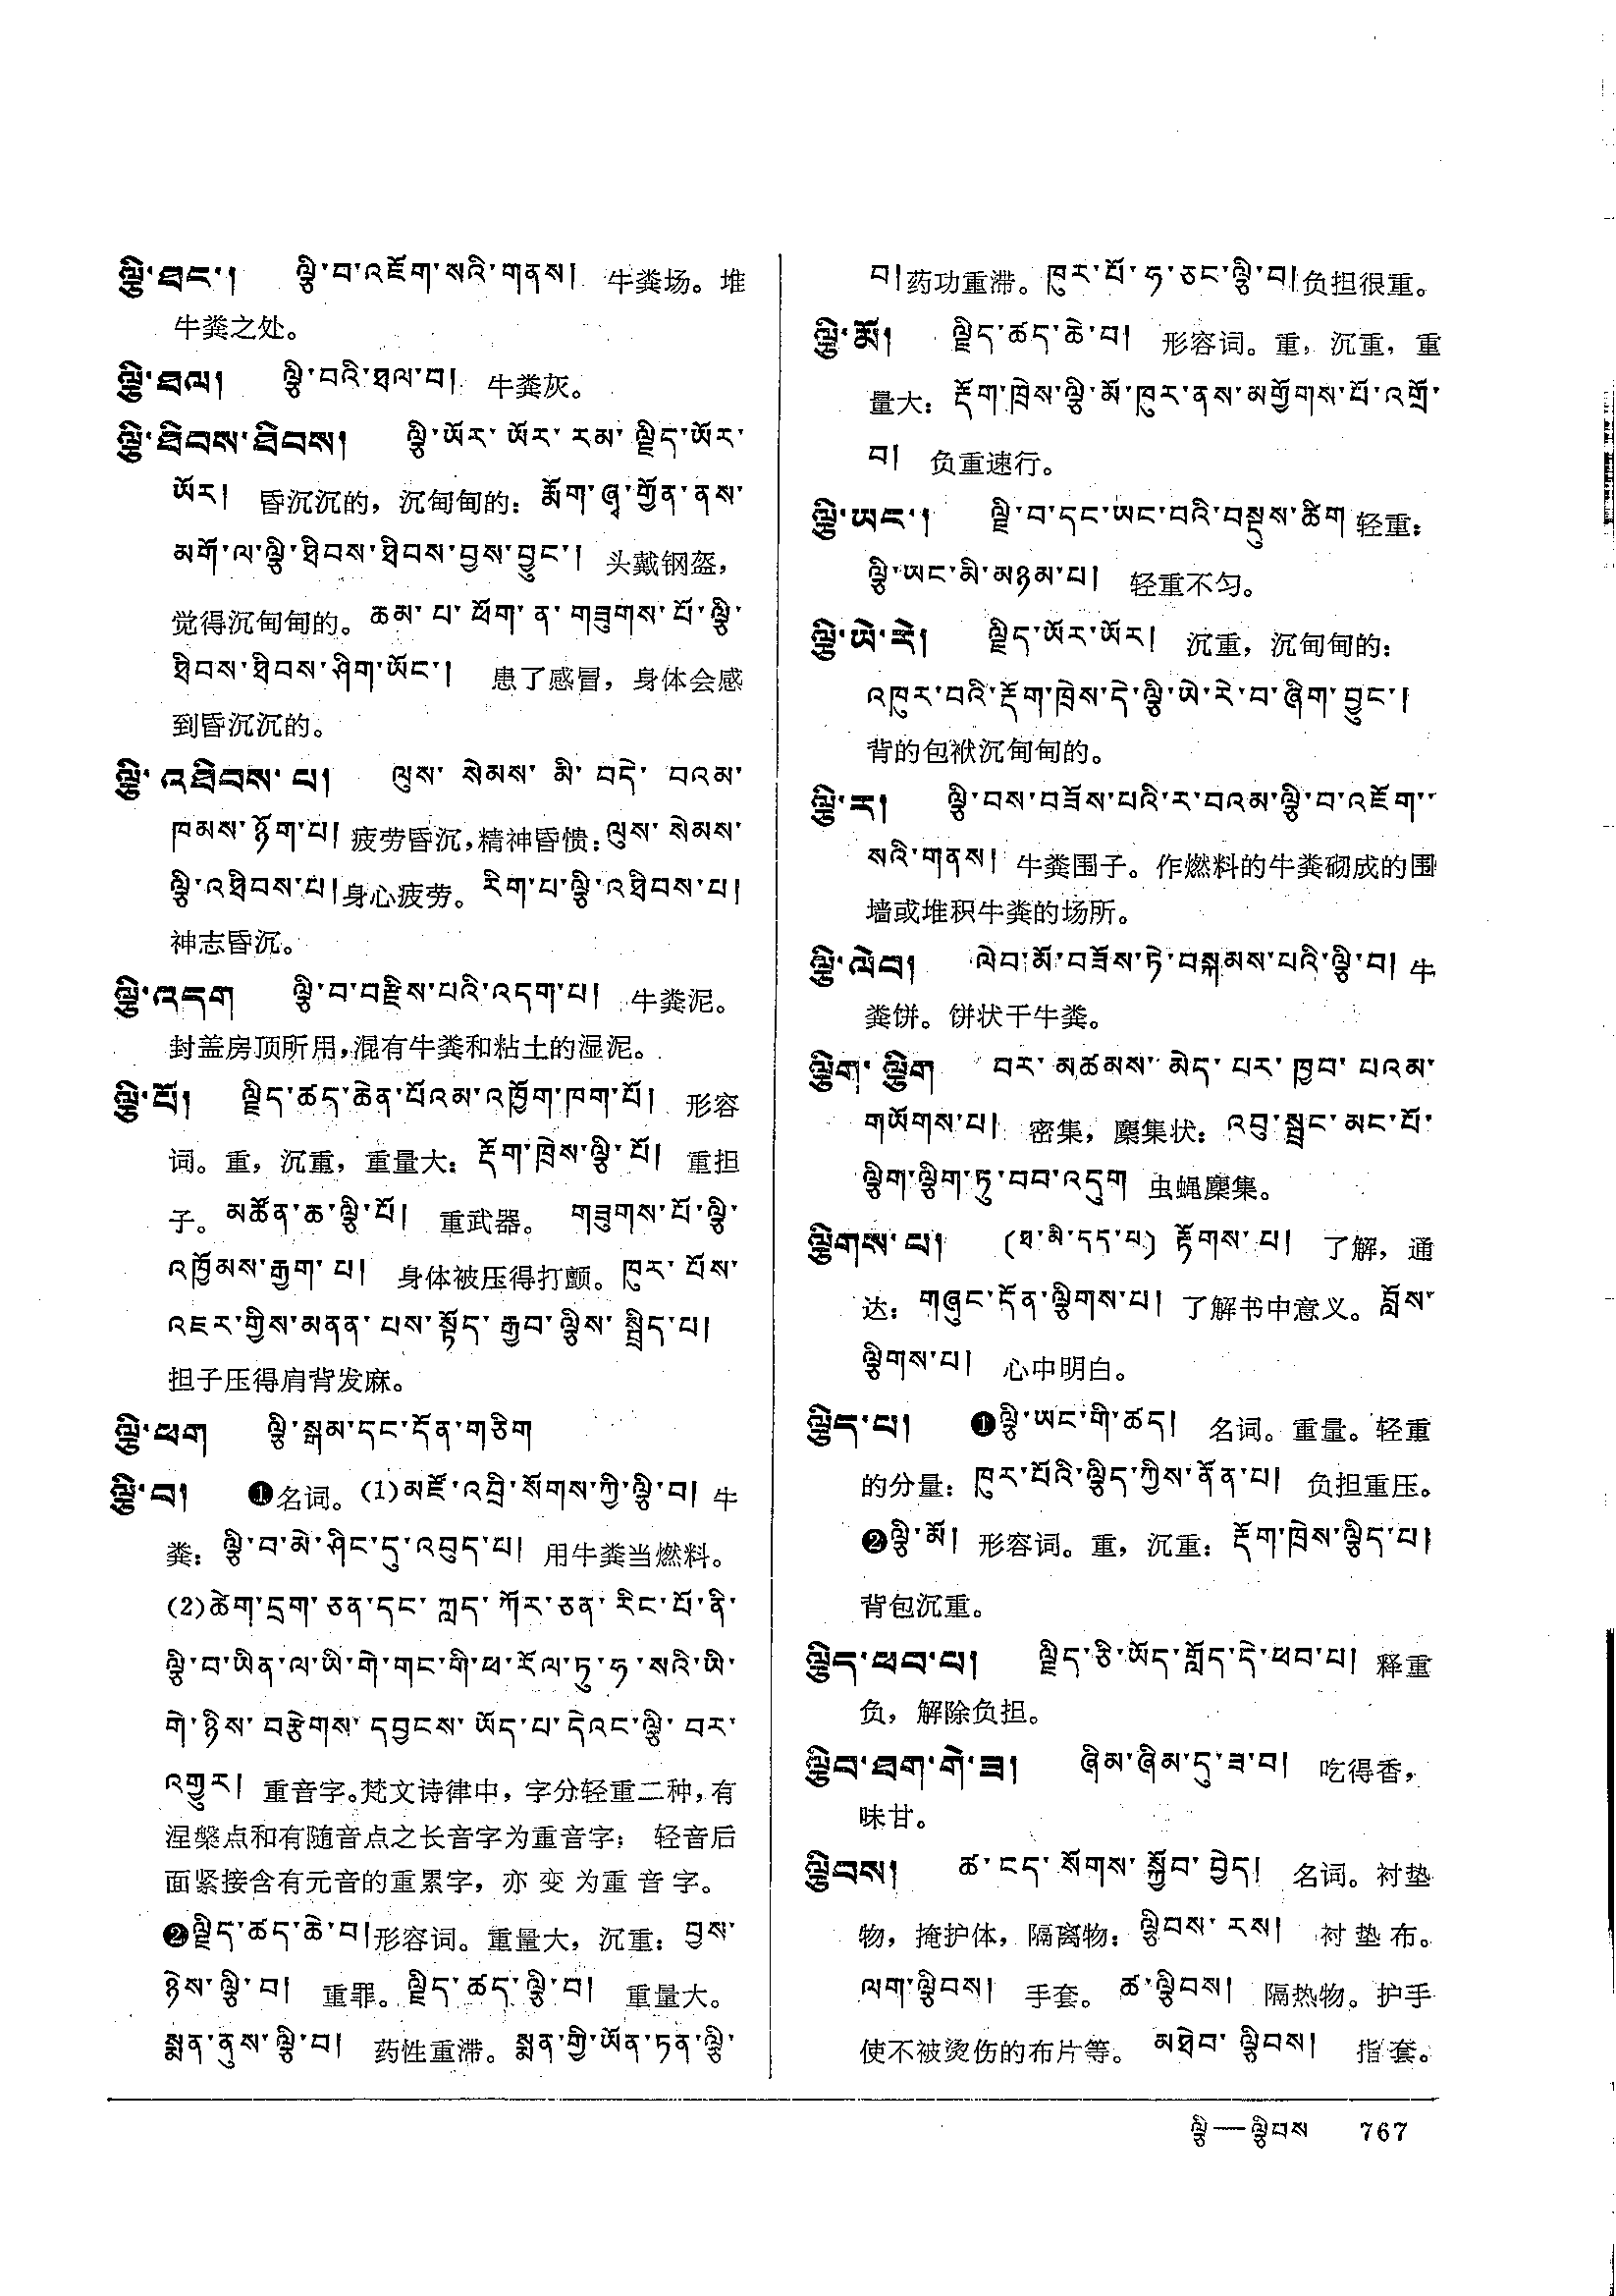 ལྕི་ཐང་། ལྕི་བ་འཇོག་སའི་གནས། 牛粪场。堆
牛粪之处。
ལྕི་ཐལ། ལྕི་བའི་ཐལ་བ། 牛粪灰。
ལྕི་ཐིབས་ཐིབས། ལྕི་ཡོར་ཡོར་རམ་ལྗིད་ཡོར་
ཡོར། 昏沉沉的，沉甸甸的：རྨོག་ཞྭ་གྱོན་ནས་
མགོ་ལ་ལྕི་ཐིབས་ཐིབས་བྱས་བྱུང་། 头戴钢盔，
觉得沉甸甸的。ཆམ་པ་ཕོག་ན་གཟུགས་པོ་ལྕི་
ཐིབས་ཐིབས་ཤིག་ཡོང་། 患了感冒，身体会感
到昏沉沉的。
ལྕི་འཐིབས་པ། ལུས་སེམས་མི་བདེ་བའམ་
ཁམས་རྙོག་པ། 疲劳昏沉，精神昏愦：ལུས་སེམས་
ལྕི་འཐིབས་པ། 身心疲劳。རིག་པ་ལྕི་འཐིབས་པ།
神志昏沉。
ལྕི་འདག ལྕི་བ་བརྫིས་པའི་འདག་པ། 牛粪泥。
封盖房顶所用，混有牛粪和粘土的湿泥。
ལྕི་པོ། ལྗིད་ཚད་ཆེན་པོའམ་འཁྱོག་ཁག་པོ། 形容
词。重，沉重，重量大：རྡོག་ཁྲེས་ལྕི་པོ། 重担
子。མཚོན་ཆ་ལྕི་པོ། 重武器。 གཟུགས་པོ་ལྕི་
འཁྱོམས་རྒྱག་པ། 身体被压得打颤。ཁུར་པོས་
འཇར་གྱིས་མནན་པས་སྟོད་རྒྱབ་ལྕིས་སྦྲིད་པ།
担子压得肩背发麻。
ལྕི་ཕག ལྕི་སྐམ་དང་དོན་གཅིག
ལྕི་བ། ❶名词。(1)མཛོ་འབྲི་སོགས་ཀྱི་ལྕི་བ། 牛
粪：ལྕི་བ་མེ་ཤིང་དུ་འབུད་པ། 用牛粪当燃料。
(2)ཚེག་དྲག་ཅན་དང་ཀླད་ཀོར་ཅན་རིང་པོ་ནི་
ལྕི་བ་ཡིན་ལ་ཡི་གེ་གང་གི་ཕ་རོལ་ཏུ་ཧ་སའི་ཡི་
གེ་ཉིས་བརྩེགས་དབྱངས་ཡོད་པ་དེའང་ལྕི་བར་
འགྱུར། 重音字。梵文诗律中，字分轻重二种，有
涅槃点和有随音点之长音字为重音字； 轻音后
面紧接含有元音的重累字，亦变为重音字。
❷ལྗིད་ཚད་ཆེ་བ། 形容词。重量大，沉重：བྱས་
ཉེས་ལྕི་བ། 重罪。ལྗིད་ཚད་ལྕི་བ། 重量大。
སྨན་ནུས་ལྕི་བ། 药性重滞。སྨན་གྱི་ཡོན་ཏན་ལྕི་
བ། 药功重滞。ཁུར་པོ་ཧ་ཅང་ལྕི་བ། 负担很重。
ལྕི་མོ། ལྗིད་ཚད་ཆེ་བ། 形容词。重，沉重，重
量大：རྡོག་ཁྲེས་ལྕི་མོ་ཁུར་ནས་མགྱོགས་པོ་འགྲོ་
བ། 负重速行。
ལྕི་ཡང་། ལྗི་བ་དང་ཡང་བའི་བསྡུས་ཚིག 轻重：
ལྕི་ཡང་མི་མཉམ་པ། 轻重不匀。
ལྕི་ཡེ་རེ། ལྗིད་ཡོར་ཡོར། 沉重，沉甸甸的：
འཁུར་བའི་རྡོག་ཁྲེས་དེ་ལྕི་ཡེ་རེ་བ་ཞིག་བྱུང་།
背的包袱沉甸甸的。
ལྕི་ར། ལྕི་བས་བཟོས་པའི་ར་བའམ་ལྕི་བ་འཇོག་
སའི་གནས། 牛粪围子。作燃料的牛粪砌成的围
墙或堆积牛粪的场所。
ལྕི་ལེབ། ལེབ་མོ་བཟོས་ཏེ་བསྐམས་པའི་ལྕི་བ། 牛
粪饼。饼状干牛粪。
ལྕིག་ལྕིག བར་མཚམས་མེད་པར་ཁྱབ་པའམ་
གཡོགས་པ། 密集，麇集状：འབུ་སྦྲང་མང་པོ་
ལྕིག་ལྕིག་ཏུ་བབ་འདུག 虫蝇麇集。
ལྕིགས་པ། (ཐ་མི་དད་པ) རྟོགས་པ། 了解，通
达：གཞུང་དོན་ལྕིགས་པ། 了解书中意义。བློས་
ལྕིགས་པ། 心中明白。
ལྕིད་པ། ❶ལྕི་ཡང་གི་ཚད། 名词。重量。轻重
的分量：ཁུར་པོའི་ལྕིད་ཀྱིས་ནོན་པ། 负担重压。
❷ལྕི་མོ། 形容词。重，沉重：རྡོག་ཁྲེས་ལྕིད་པ།
背包沉重。
ལྕིད་ཕབ་པ། ལྗིད་ཅི་ཡོད་གློད་དེ་ཕབ་པ། 释重
负，解除负担。
ལྕིབ་ཐག་གེ་ཟ། ཞིམ་ཞིམ་དུ་ཟ་བ། 吃得香，
味甘。
ལྕིབས། ཚ་ངད་སོགས་སྐྱོབ་བྱེད། 名词。衬垫
物，掩护体，隔离物：ལྕིབས་རས། 衬垫布。
ལག་ལྕིབས། 手套。 ཚ་ལྕིབས། 隔热物。护手
使不被烫伤的布片等。 མཐེབ་ལྕིབས། 指套。
ལྕི—ལྕིབས 767